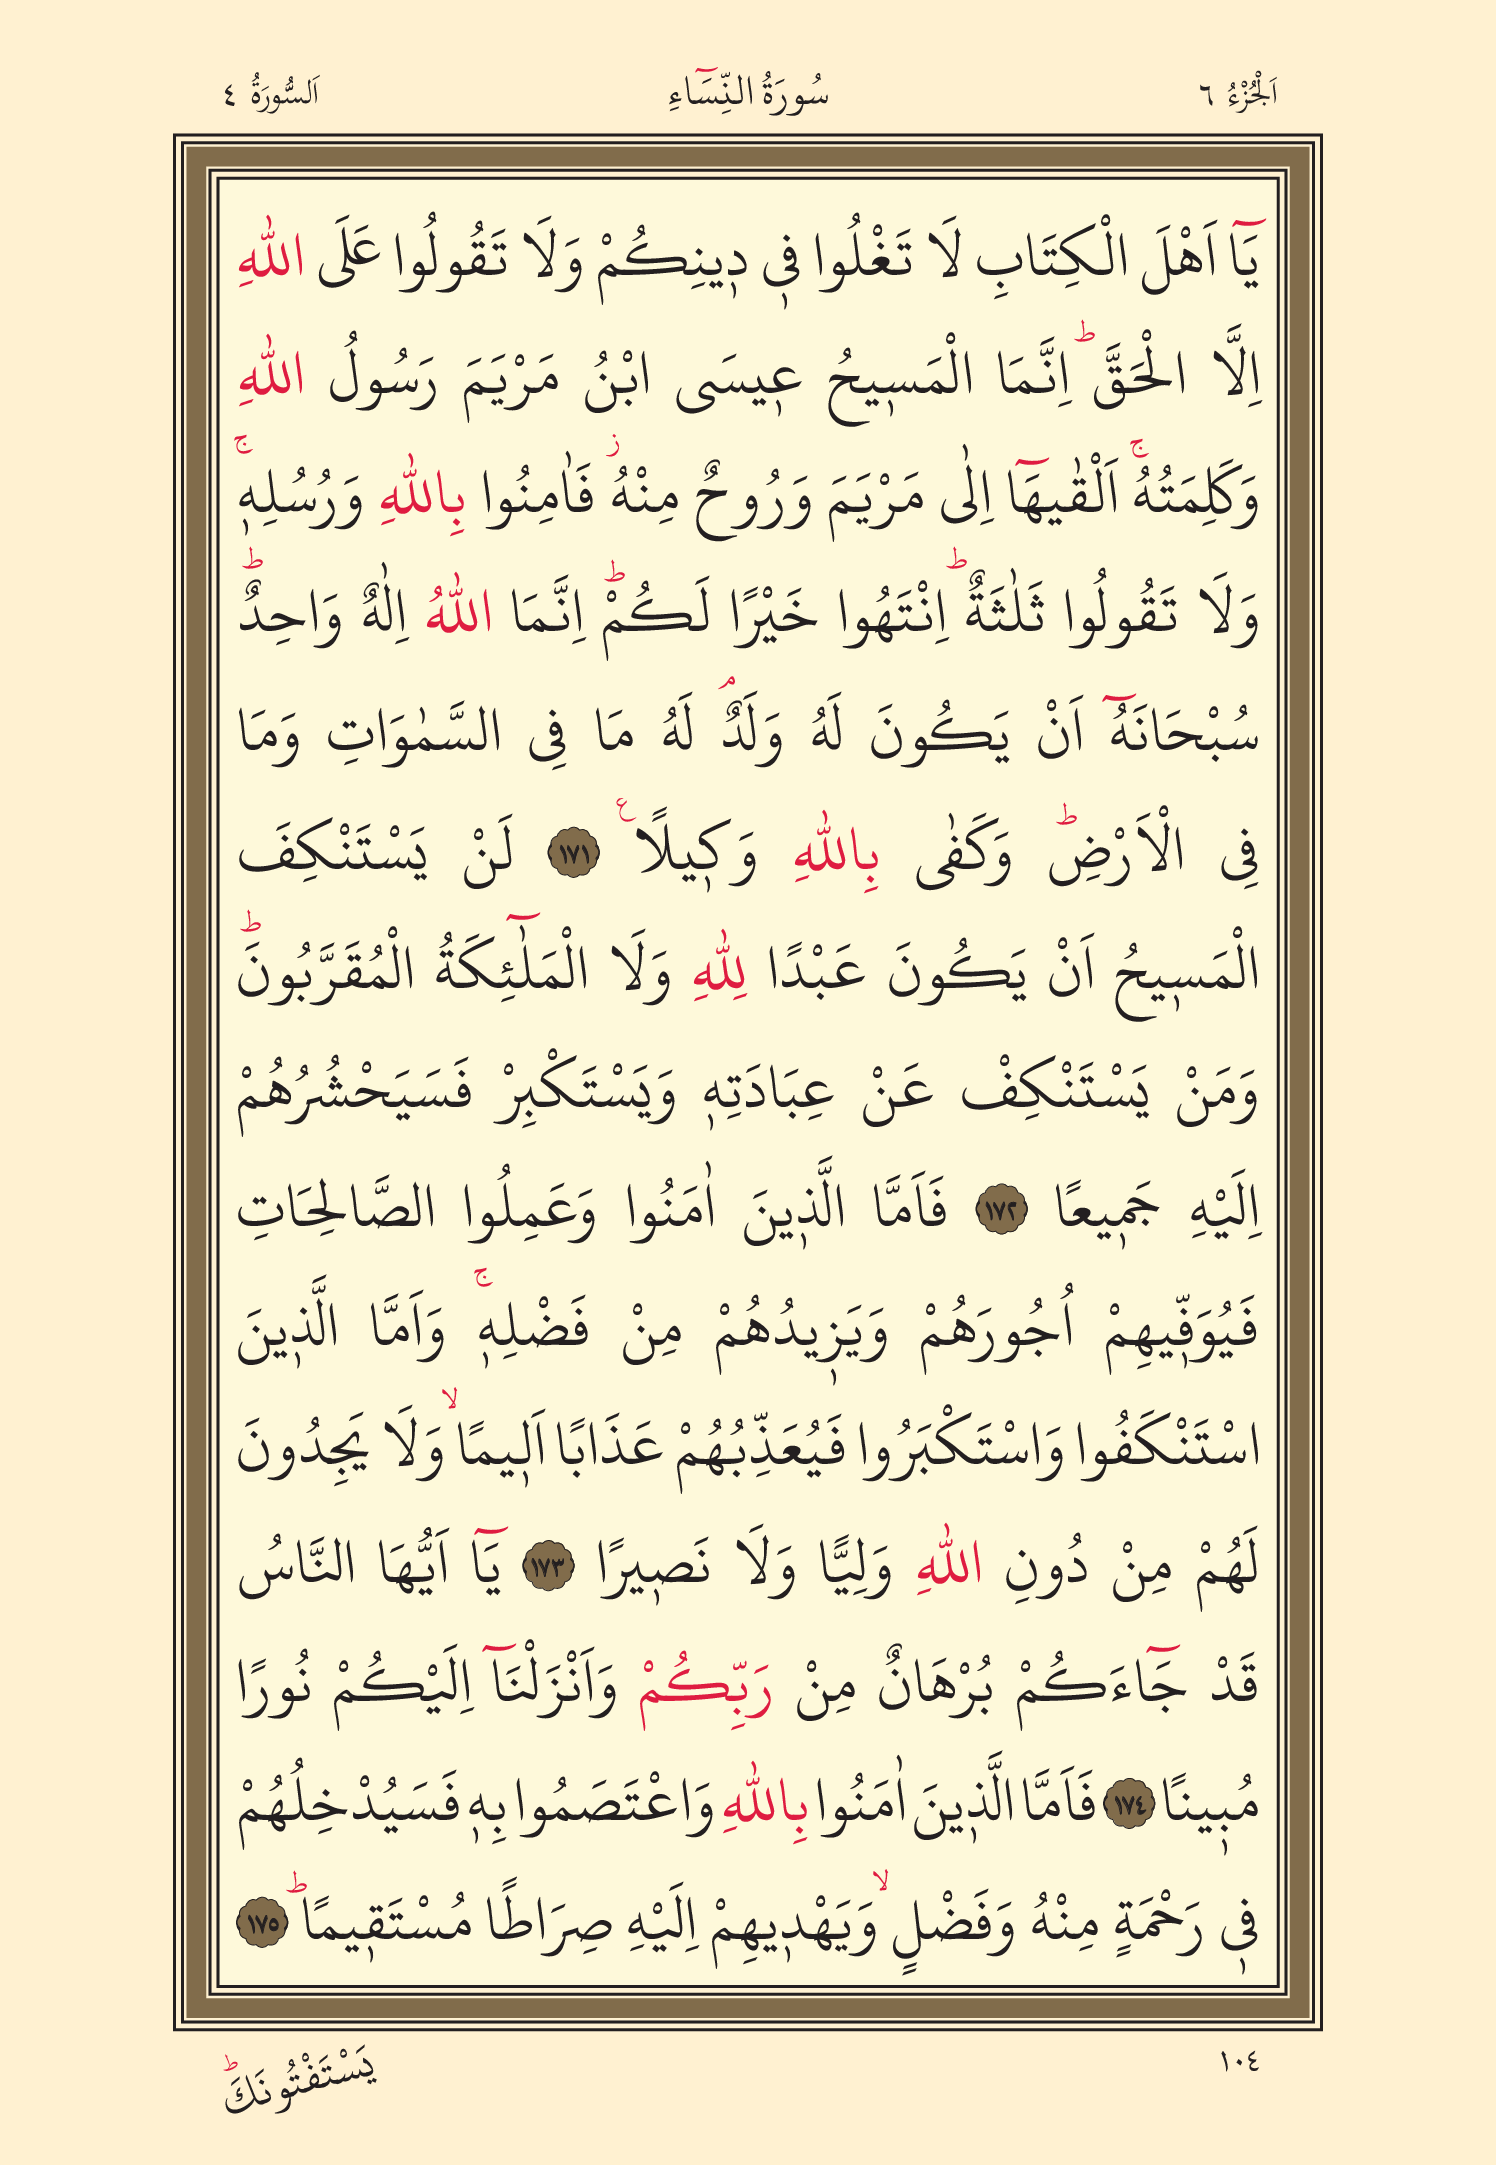 اَلْجُزْءُ ٦
سُورَةُ النِّسَٓاءِ
اَلسُّورَةُ ٤
يَٓا اَهْلَ الْكِتَابِ لَا تَغْلُوا ف۪ي د۪ينِكُمْ وَلَا تَقُولُوا عَلَى اللّٰهِ
اِلَّا الْحَقَّۜ اِنَّمَا الْمَس۪يحُ ع۪يسَى ابْنُ مَرْيَمَ رَسُولُ اللّٰهِ
وَكَلِمَتُهُۚ اَلْقٰيهَٓا اِلٰى مَرْيَمَ وَرُوحٌ مِنْهُۘ فَاٰمِنُوا بِاللّٰهِ وَرُسُلِه۪ۚ
وَلَا تَقُولُوا ثَلٰثَةٌۜ اِنْتَهُوا خَيْرًا لَكُمْۜ اِنَّمَا اللّٰهُ اِلٰهٌ وَاحِدٌۜ
سُبْحَانَهُٓ اَنْ يَكُونَ لَهُ وَلَدٌۢ لَهُ مَا فِى السَّمٰوَاتِ وَمَا
فِى الْاَرْضِۜ وَكَفٰى بِاللّٰهِ وَك۪يلًا۟ ﴿١٧١﴾ لَنْ يَسْتَنْكِفَ
الْمَس۪يحُ اَنْ يَكُونَ عَبْدًا لِلّٰهِ وَلَا الْمَلٰٓئِكَةُ الْمُقَرَّبُونَۜ
وَمَنْ يَسْتَنْكِفْ عَنْ عِبَادَتِه۪ وَيَسْتَكْبِرْ فَسَيَحْشُرُهُمْ
اِلَيْهِ جَم۪يعًا ﴿١٧٢﴾ فَاَمَّا الَّذ۪ينَ اٰمَنُوا وَعَمِلُوا الصَّالِحَاتِ
فَيُوَفّ۪يهِمْ اُجُورَهُمْ وَيَز۪يدُهُمْ مِنْ فَضْلِه۪ۚ وَاَمَّا الَّذ۪ينَ
اسْتَنْكَفُوا وَاسْتَكْبَرُوا فَيُعَذِّبُهُمْ عَذَابًا اَل۪يمًاۙ وَلَا يَجِدُونَ
لَهُمْ مِنْ دُونِ اللّٰهِ وَلِيًّا وَلَا نَص۪يرًا ﴿١٧٣﴾ يَٓا اَيُّهَا النَّاسُ
قَدْ جَٓاءَكُمْ بُرْهَانٌ مِنْ رَبِّكُمْ وَاَنْزَلْنَٓا اِلَيْكُمْ نُورًا
مُب۪ينًا ﴿١٧٤﴾ فَاَمَّا الَّذ۪ينَ اٰمَنُوا بِاللّٰهِ وَاعْتَصَمُوا بِه۪ فَسَيُدْخِلُهُمْ
ف۪ي رَحْمَةٍ مِنْهُ وَفَضْلٍۙ وَيَهْد۪يهِمْ اِلَيْهِ صِرَاطًا مُسْتَق۪يمًاۜ ﴿١٧٥﴾
١٠٤
يَسْتَفْتُونَكَۜ